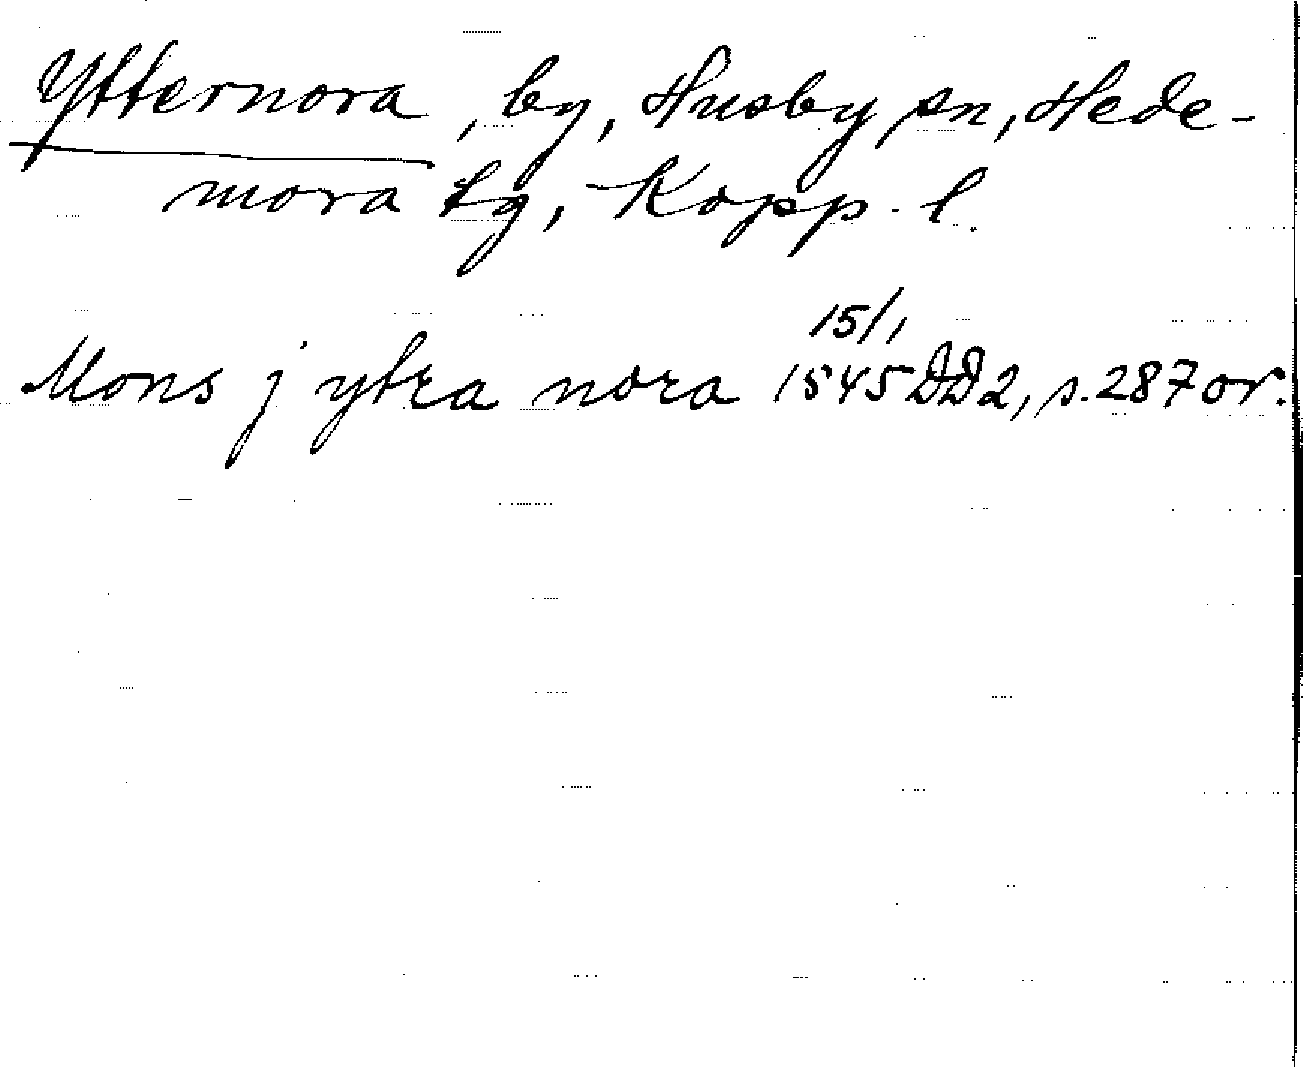 Ytternora, by, Husby sn, Hede-
mora tg, Kopp. l.
15/1
Mons j ytra nora 1545 DD2, s. 287 or.